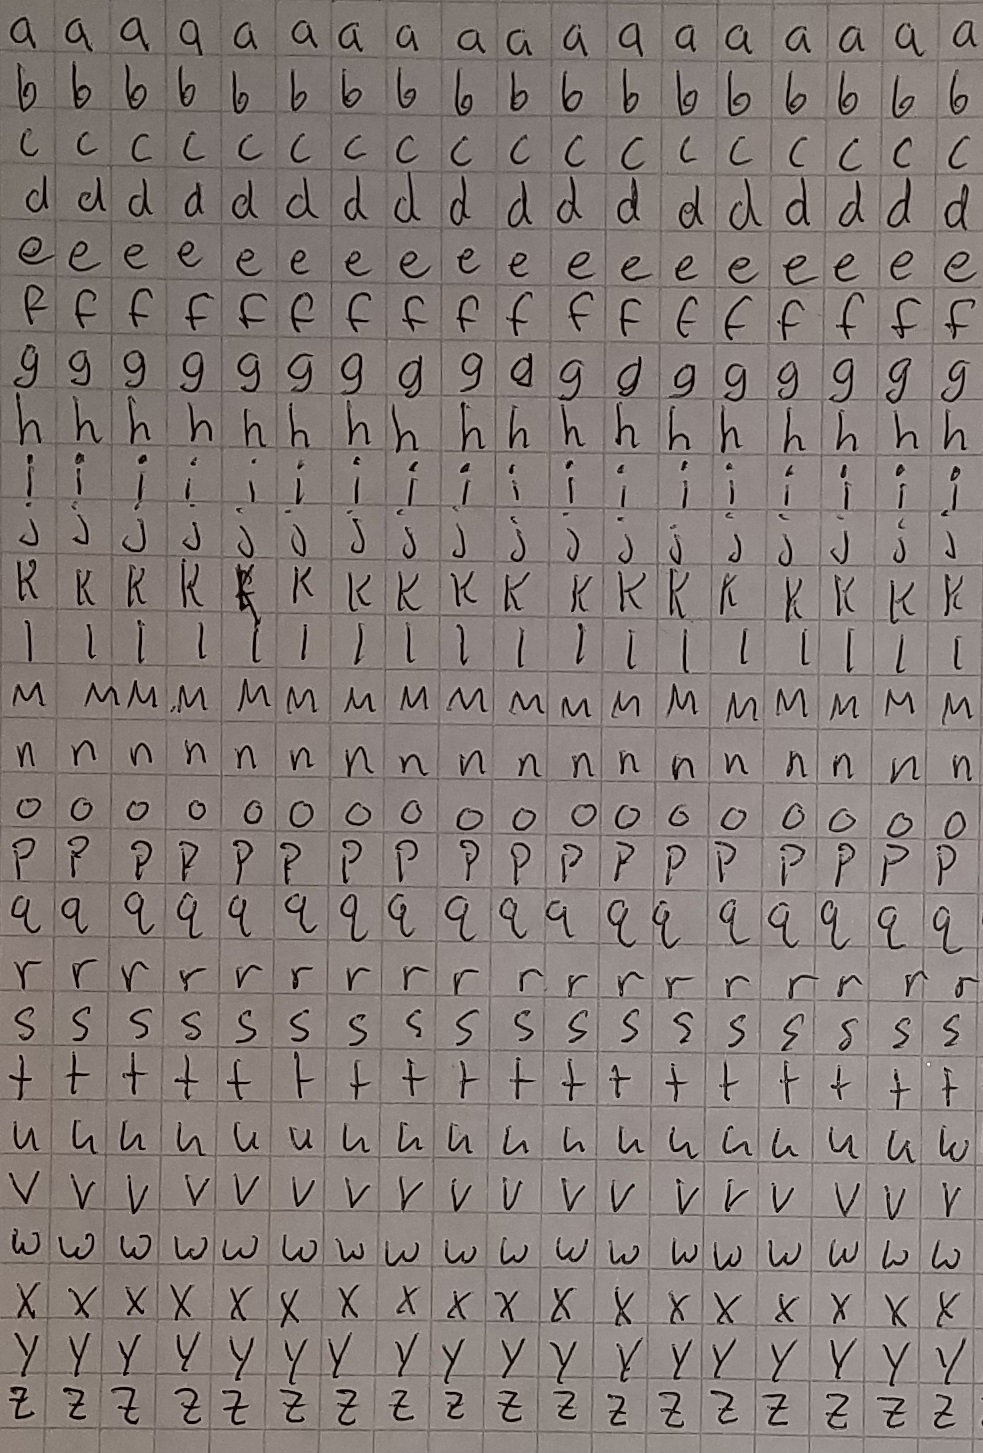 a a a a a a a a a a a a a a a a a a
b b b b b b b b b b b b b b b b b b
c c c c c c c c c c c c c c c c c c
d d d d d d d d d d d d d d d d d d
e e e e e e e e e e e e e e e e e e
f f f f f f f f f f f f f f f f f f
g g g g g g g g g g g g g g g g g g
h h h h h h h h h h h h h h h h h h
i i i i i i i i i i i i i i i i i i
j j j j j j j j j j j j j j j j j j
k k k k k k k k k k k k k k k k k k
l l l l l l l l l l l l l l l l l l
m m m m m m m m m m m m m m m m m m
n n n n n n n n n n n n n n n n n n
o o o o o o o o o o o o o o o o o o
p p p p p p p p p p p p p p p p p p
q q q q q q q q q q q q q q q q q q
r r r r r r r r r r r r r r r r r r
s s s s s s s s s s s s s s s s s s
t t t t t t t t t t t t t t t t t t
u u u u u u u u u u u u u u u u u w
v v v v v v v v v v v v v v v v v v
w w w w w w w w w w w w w w w w w w
x x x x x x x x x x x x x x x x x x
y y y y y y y y y y y y y y y y y y
z z z z z z z z z z z z z z z z z z